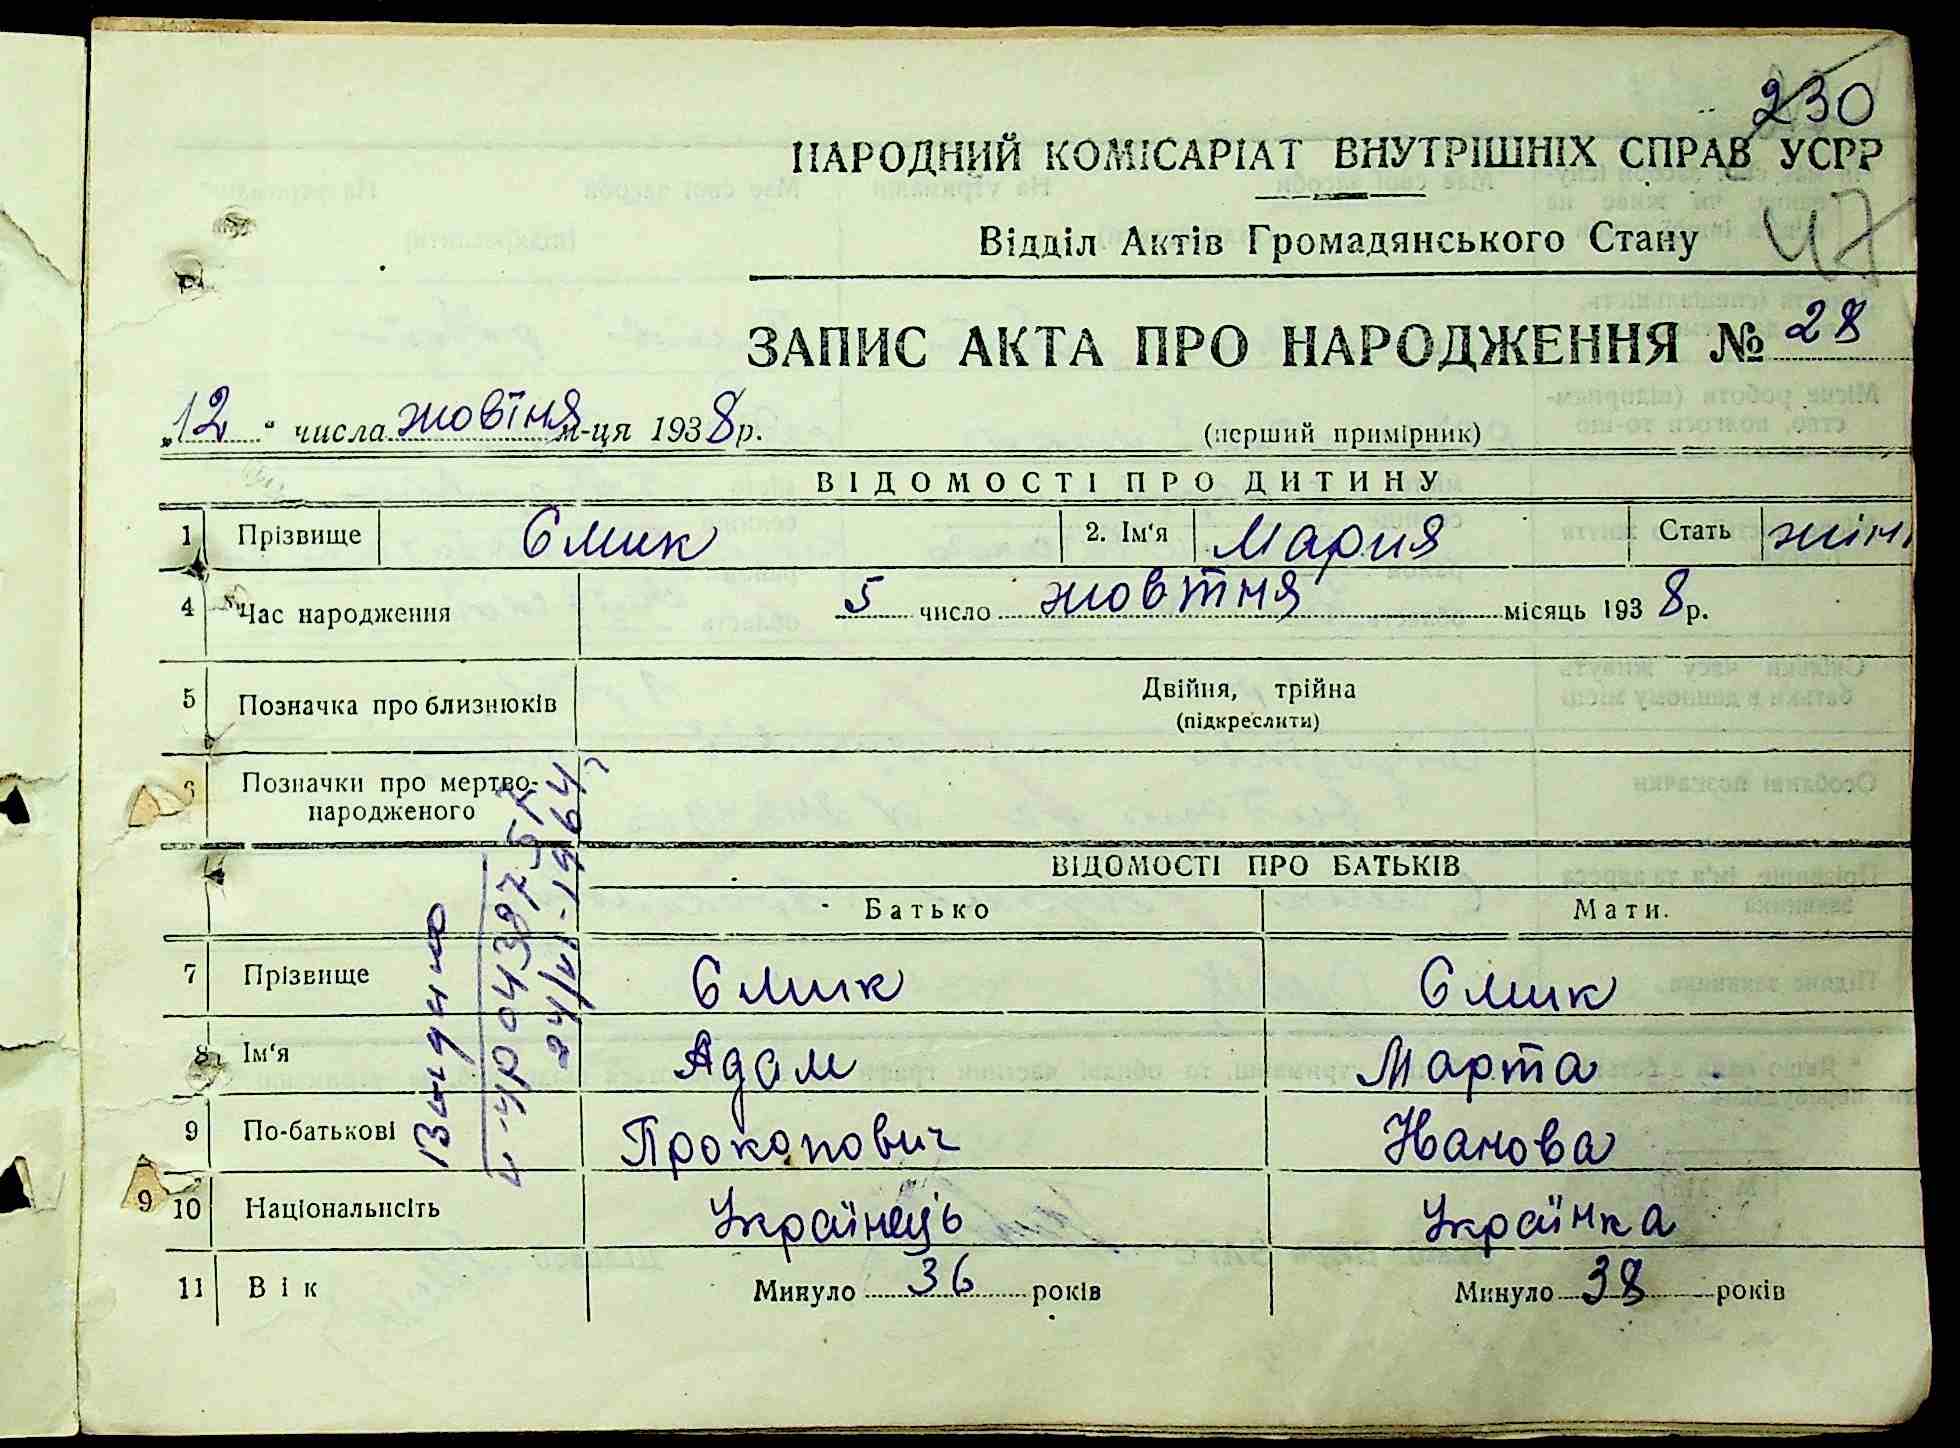 230
НАРОДНИЙ КОМІСАРІАТ ВНУТРІШНІХ СПРАВ УСРР
47
Відділ Актів Громадянського Стану
ЗАПИС АКТА ПРО НАРОДЖЕННЯ № 28
„12“ числа жовтня м-ця 1938 р.
(перший примірник)
ВІДОМОСТІ ПРО ДИТИНУ
1 Прізвище Ємик 2. Ім‘я Мария Стать жін
4 Час народження 5 число жовтня місяць 1938 р.
5 Позначка про близнюків Двійня, трійна
(підкреслити)
6 Позначки про мертво-
народженого
ВІДОМОСТІ ПРО БАТЬКІВ
Батько Мати.
7 Прізвище Ємик Ємик
8 Ім‘я Адам Марта
9 По-батькові Прокопович Иванова
9 10 Національність Українець Українка
11 Вік Минуло 36 років Минуло 38 років